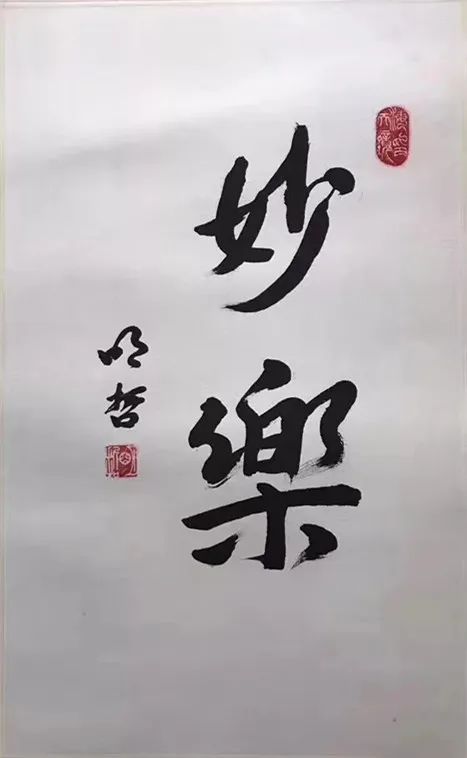 妙樂
明哲